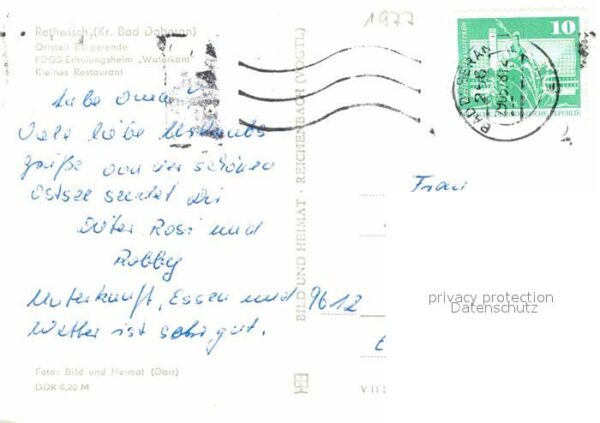 1977
Rethwisch (Kr. Bad Doberan)
Ortsteil Börgerende
FDGB-Erholungsheim „Waterkant"
Kleines Restaurant
Liebe Oma!
Viele liebe Urlaubs
grüße von der schönen
Ostsee sendet Dir
Dieter Rosi und
Robby
Unterkunft, Essen und
Wetter ist sehr gut.
Foto: Bild und Heimat (Darr)
DDR 0,20 M
BILD UND HEIMAT · REICHENBACH (VOGTL)
V 11
10
BAD DOBERAN
Frau
9612
privacy protection
Datenschutz